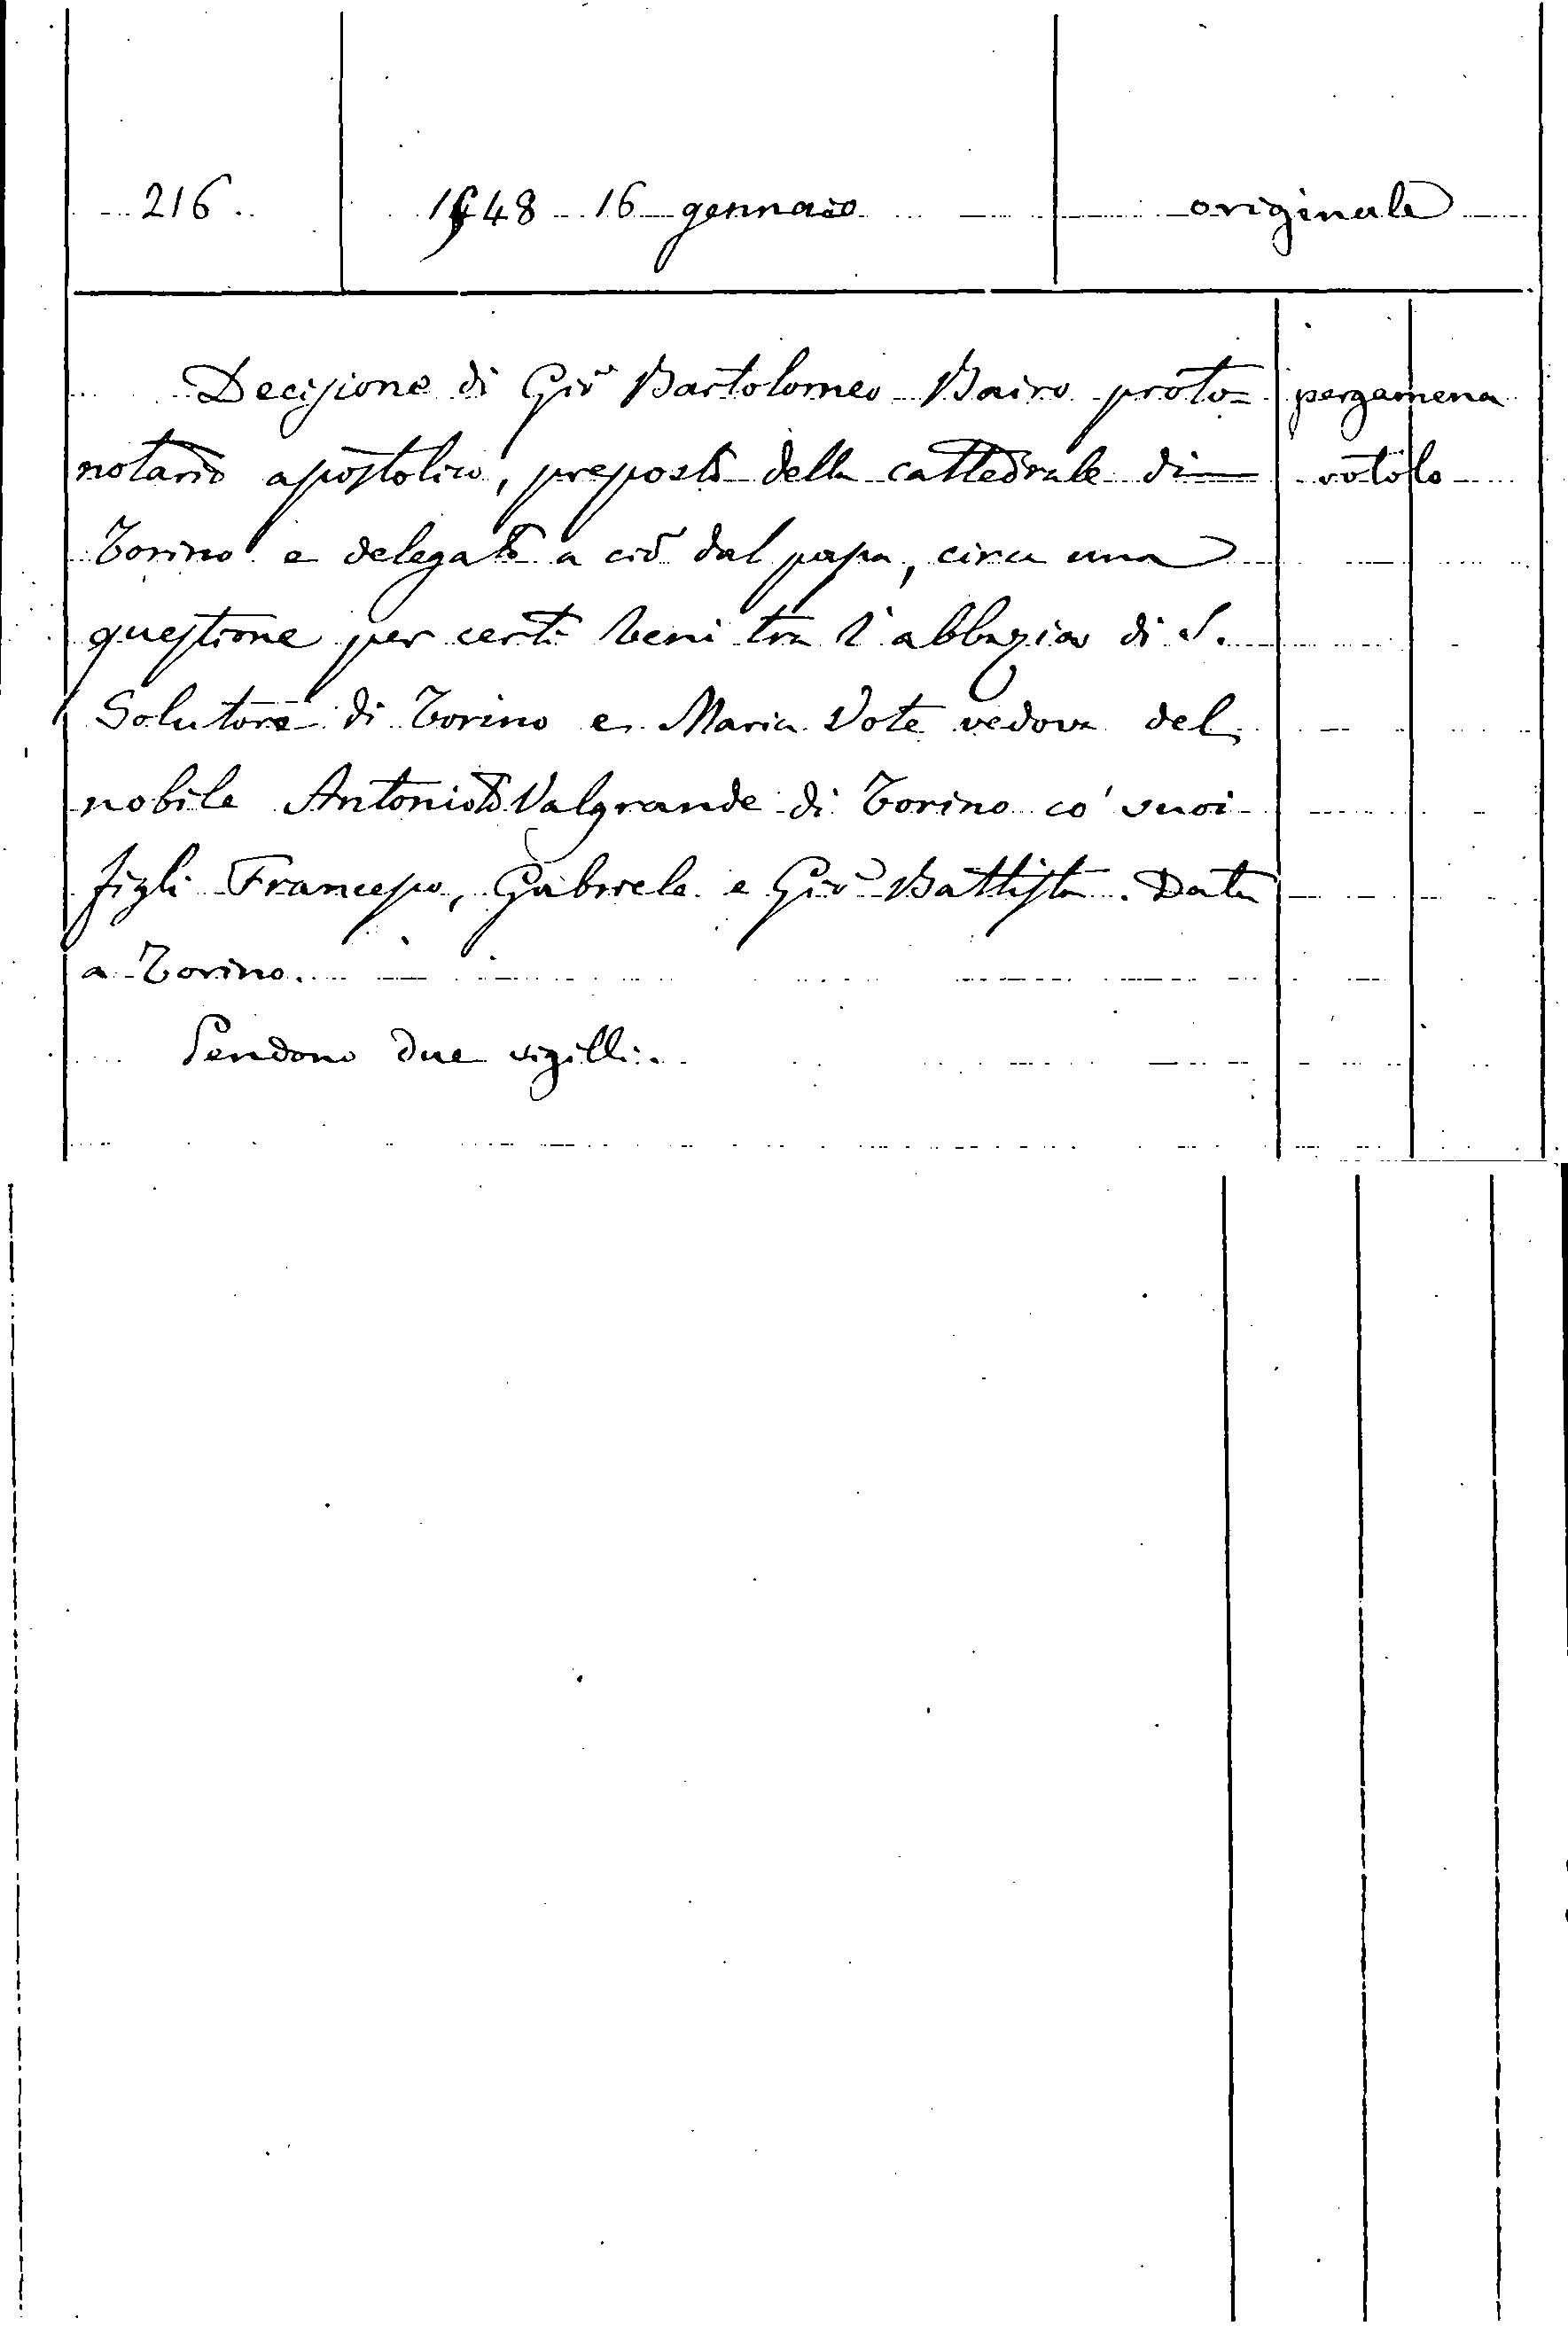 216. 1548 16 gennaio originale
Decisione di Gio Bartolomeo Bairo proto=
notario apostolico, preposto della cattedrale di
Torino e delegato a ciò dal papa, circa una
questione per certi beni tra l'abbazia di S.
Solutore di Torino e Maria Vote vedova del
nobile Antonioto Valgrande di Torino co' suoi
figli Francesco, Gabriele e Gio Battista. Data
a Torino.
Pendono due sigilli.
pergamena
rotolo